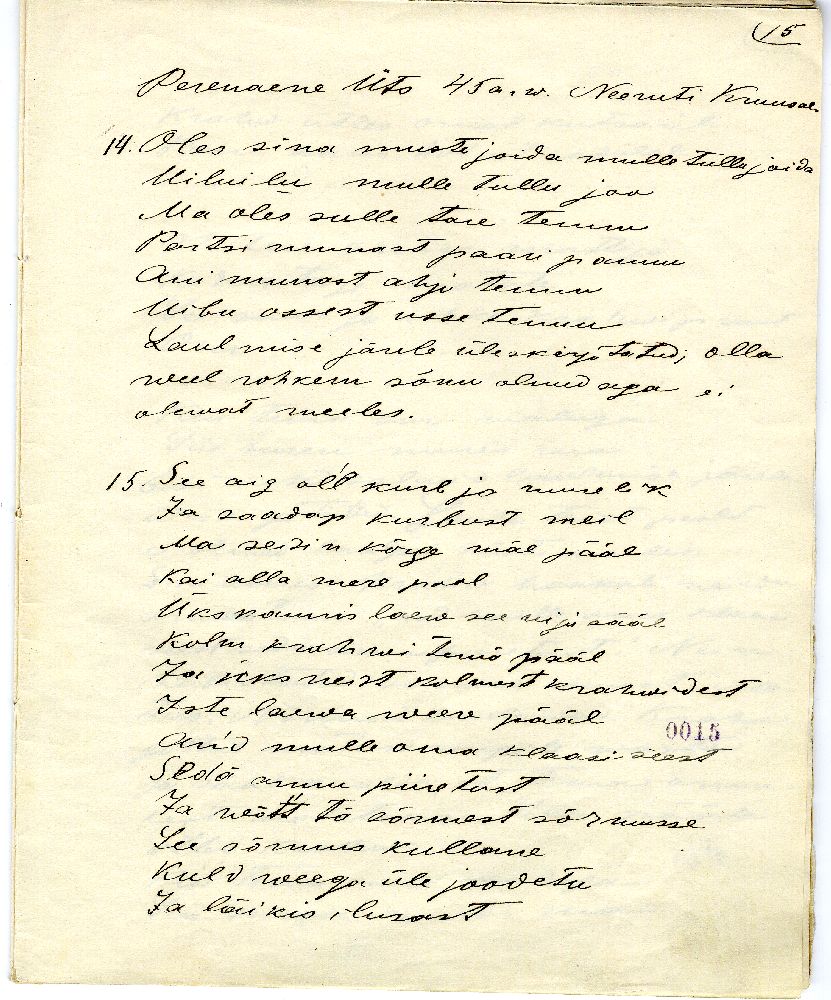 15
Perenaene Üts 45 a. w. Neeruti Kruusal.
14. Oles sina musta joida mulle tullu joida
Uiluilu mulle tullu joo
Ma oles sulle tare tennu
Partsi munast paari pannu
Ani munast ahju tennu
Uibu ossest usse tennu
Laulmise järele üleskirjotatud, olla
weel rohkem sõnu olnud aga ei
olewat meeles.
15. See aig oll kurb ja murelik
Ja saadap kurbust meil
Ma seisin kõrge mäe pääl
Kai alla mere pool
Üks kaunis laew see uiju sääl
Kolm krahwi temä pääl
Ja üks neist kolmest krahwidest
Iste laewa weere pääl
0015
And mulle oma klaasi seest
Sedä annu piiretust
Ja wõtt tä sõrmest sõrmusse
See sõrmus kullane
Kuld weega üle joodetu
Ja läikis ilusast